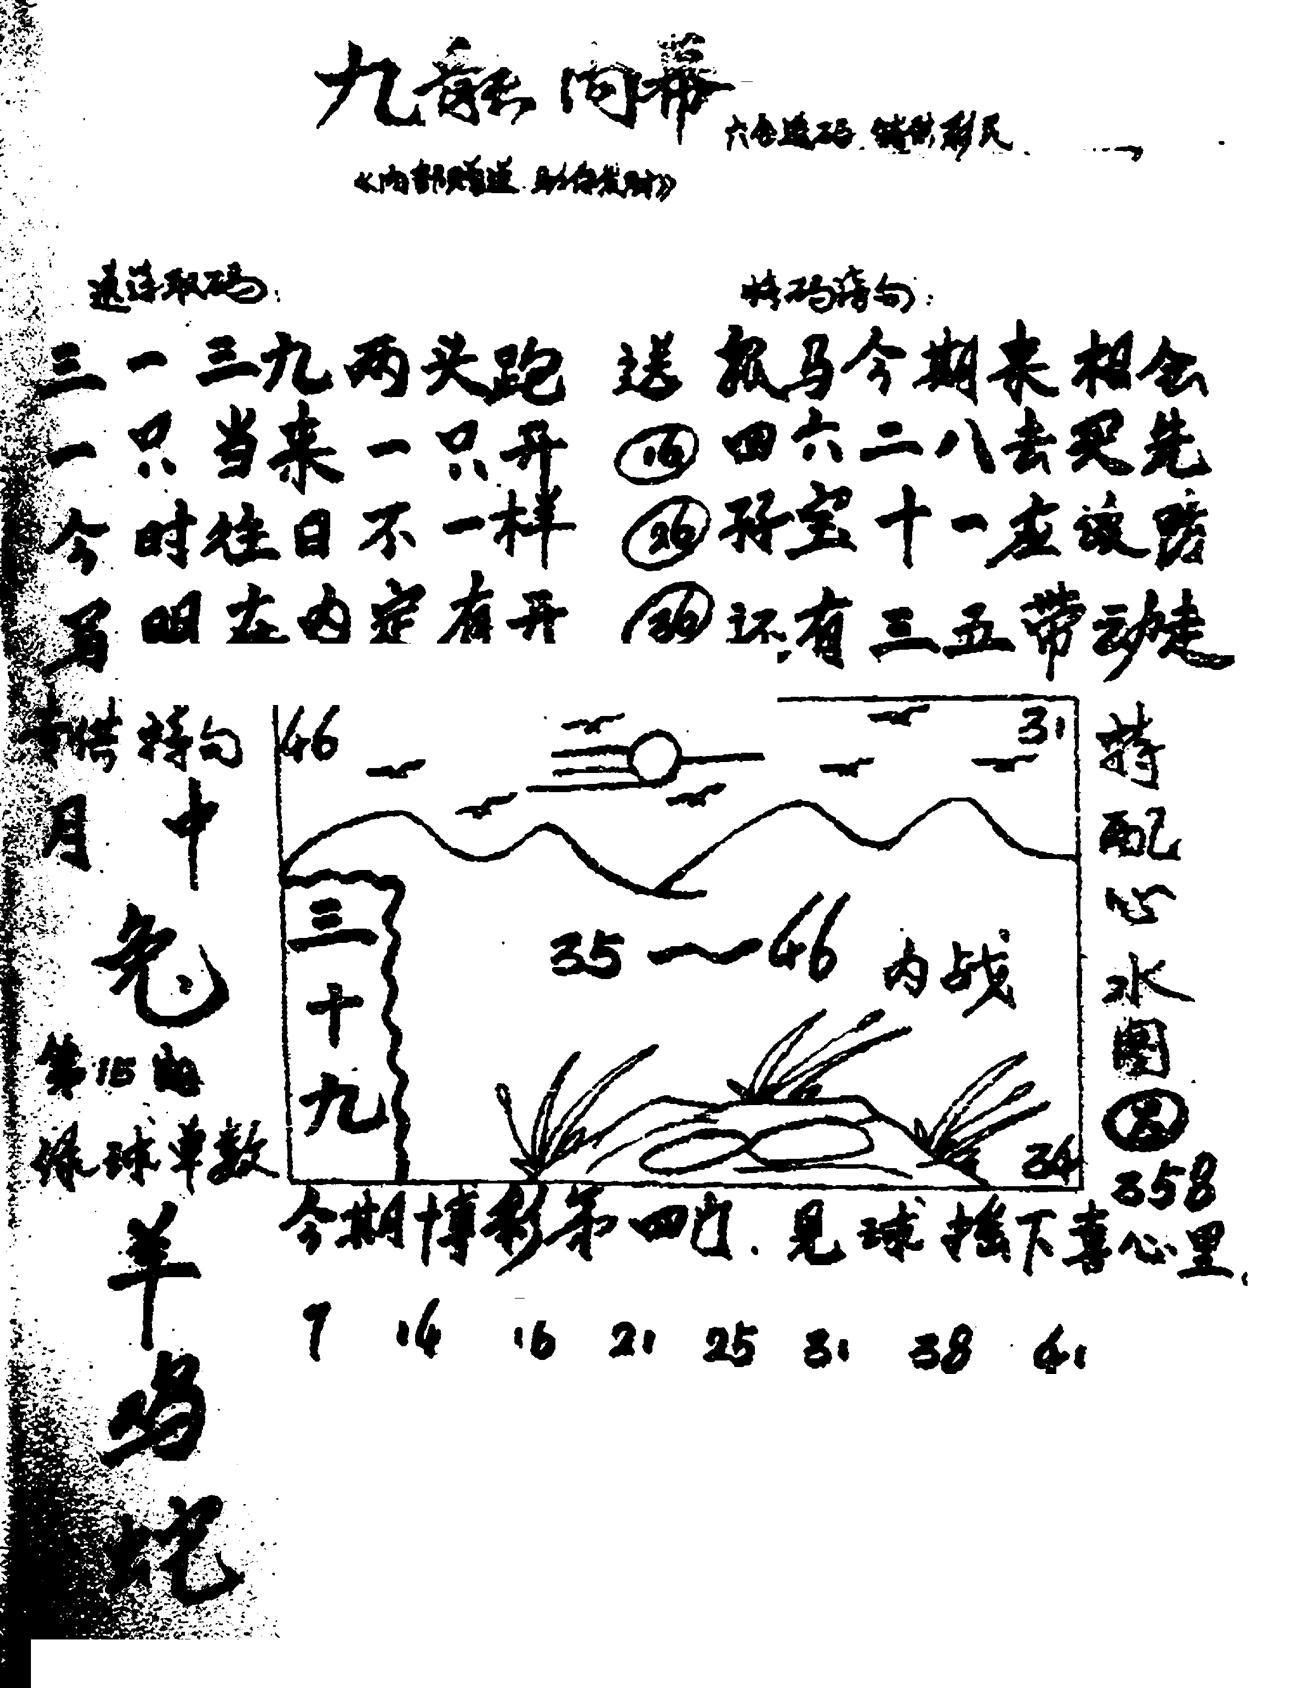 九龙内幕
六合透码 特供彩民
《内部赠送 助你发财》
速详取码:
特码诗句:
三一三九两头跑
一只当来一只开
今时往日不一样
有在内定有开
送
16
26
36
报马今期来相会
四六二八去买先
孖宝十一应该路
还有三五带动走
专供特句
月中
兔
第15期
绿球单数
羊
鸡
蛇
46
31
三十九
35~46 内战
34
特配心水图
358
今期博彩第四门.见球摇下喜心里.
7 14 16 21 25 31 38 41